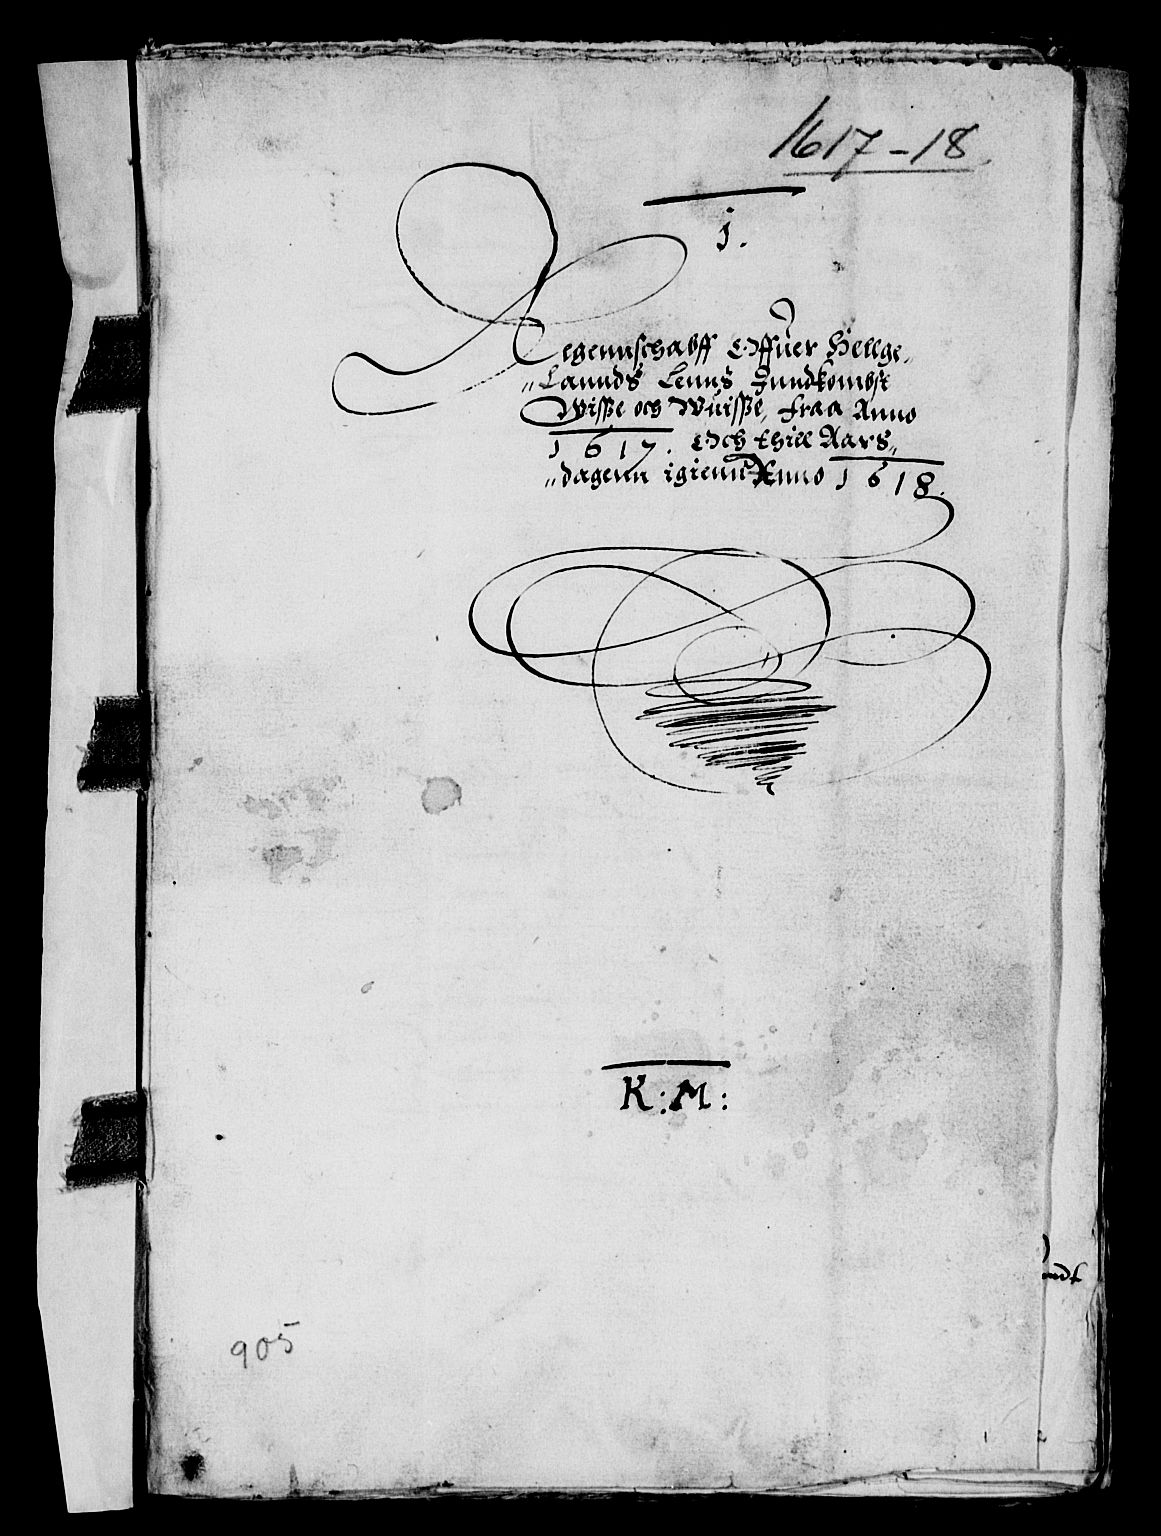 1617-18
j.
Regennschabff Offuer Hellge„
„Lannds Lenns Inndkombst
Wisße och Wuisße, fraa Anno
1617. Och thill Aars„
„dagenn igienn Anno 1618.
K: M:
andt
905